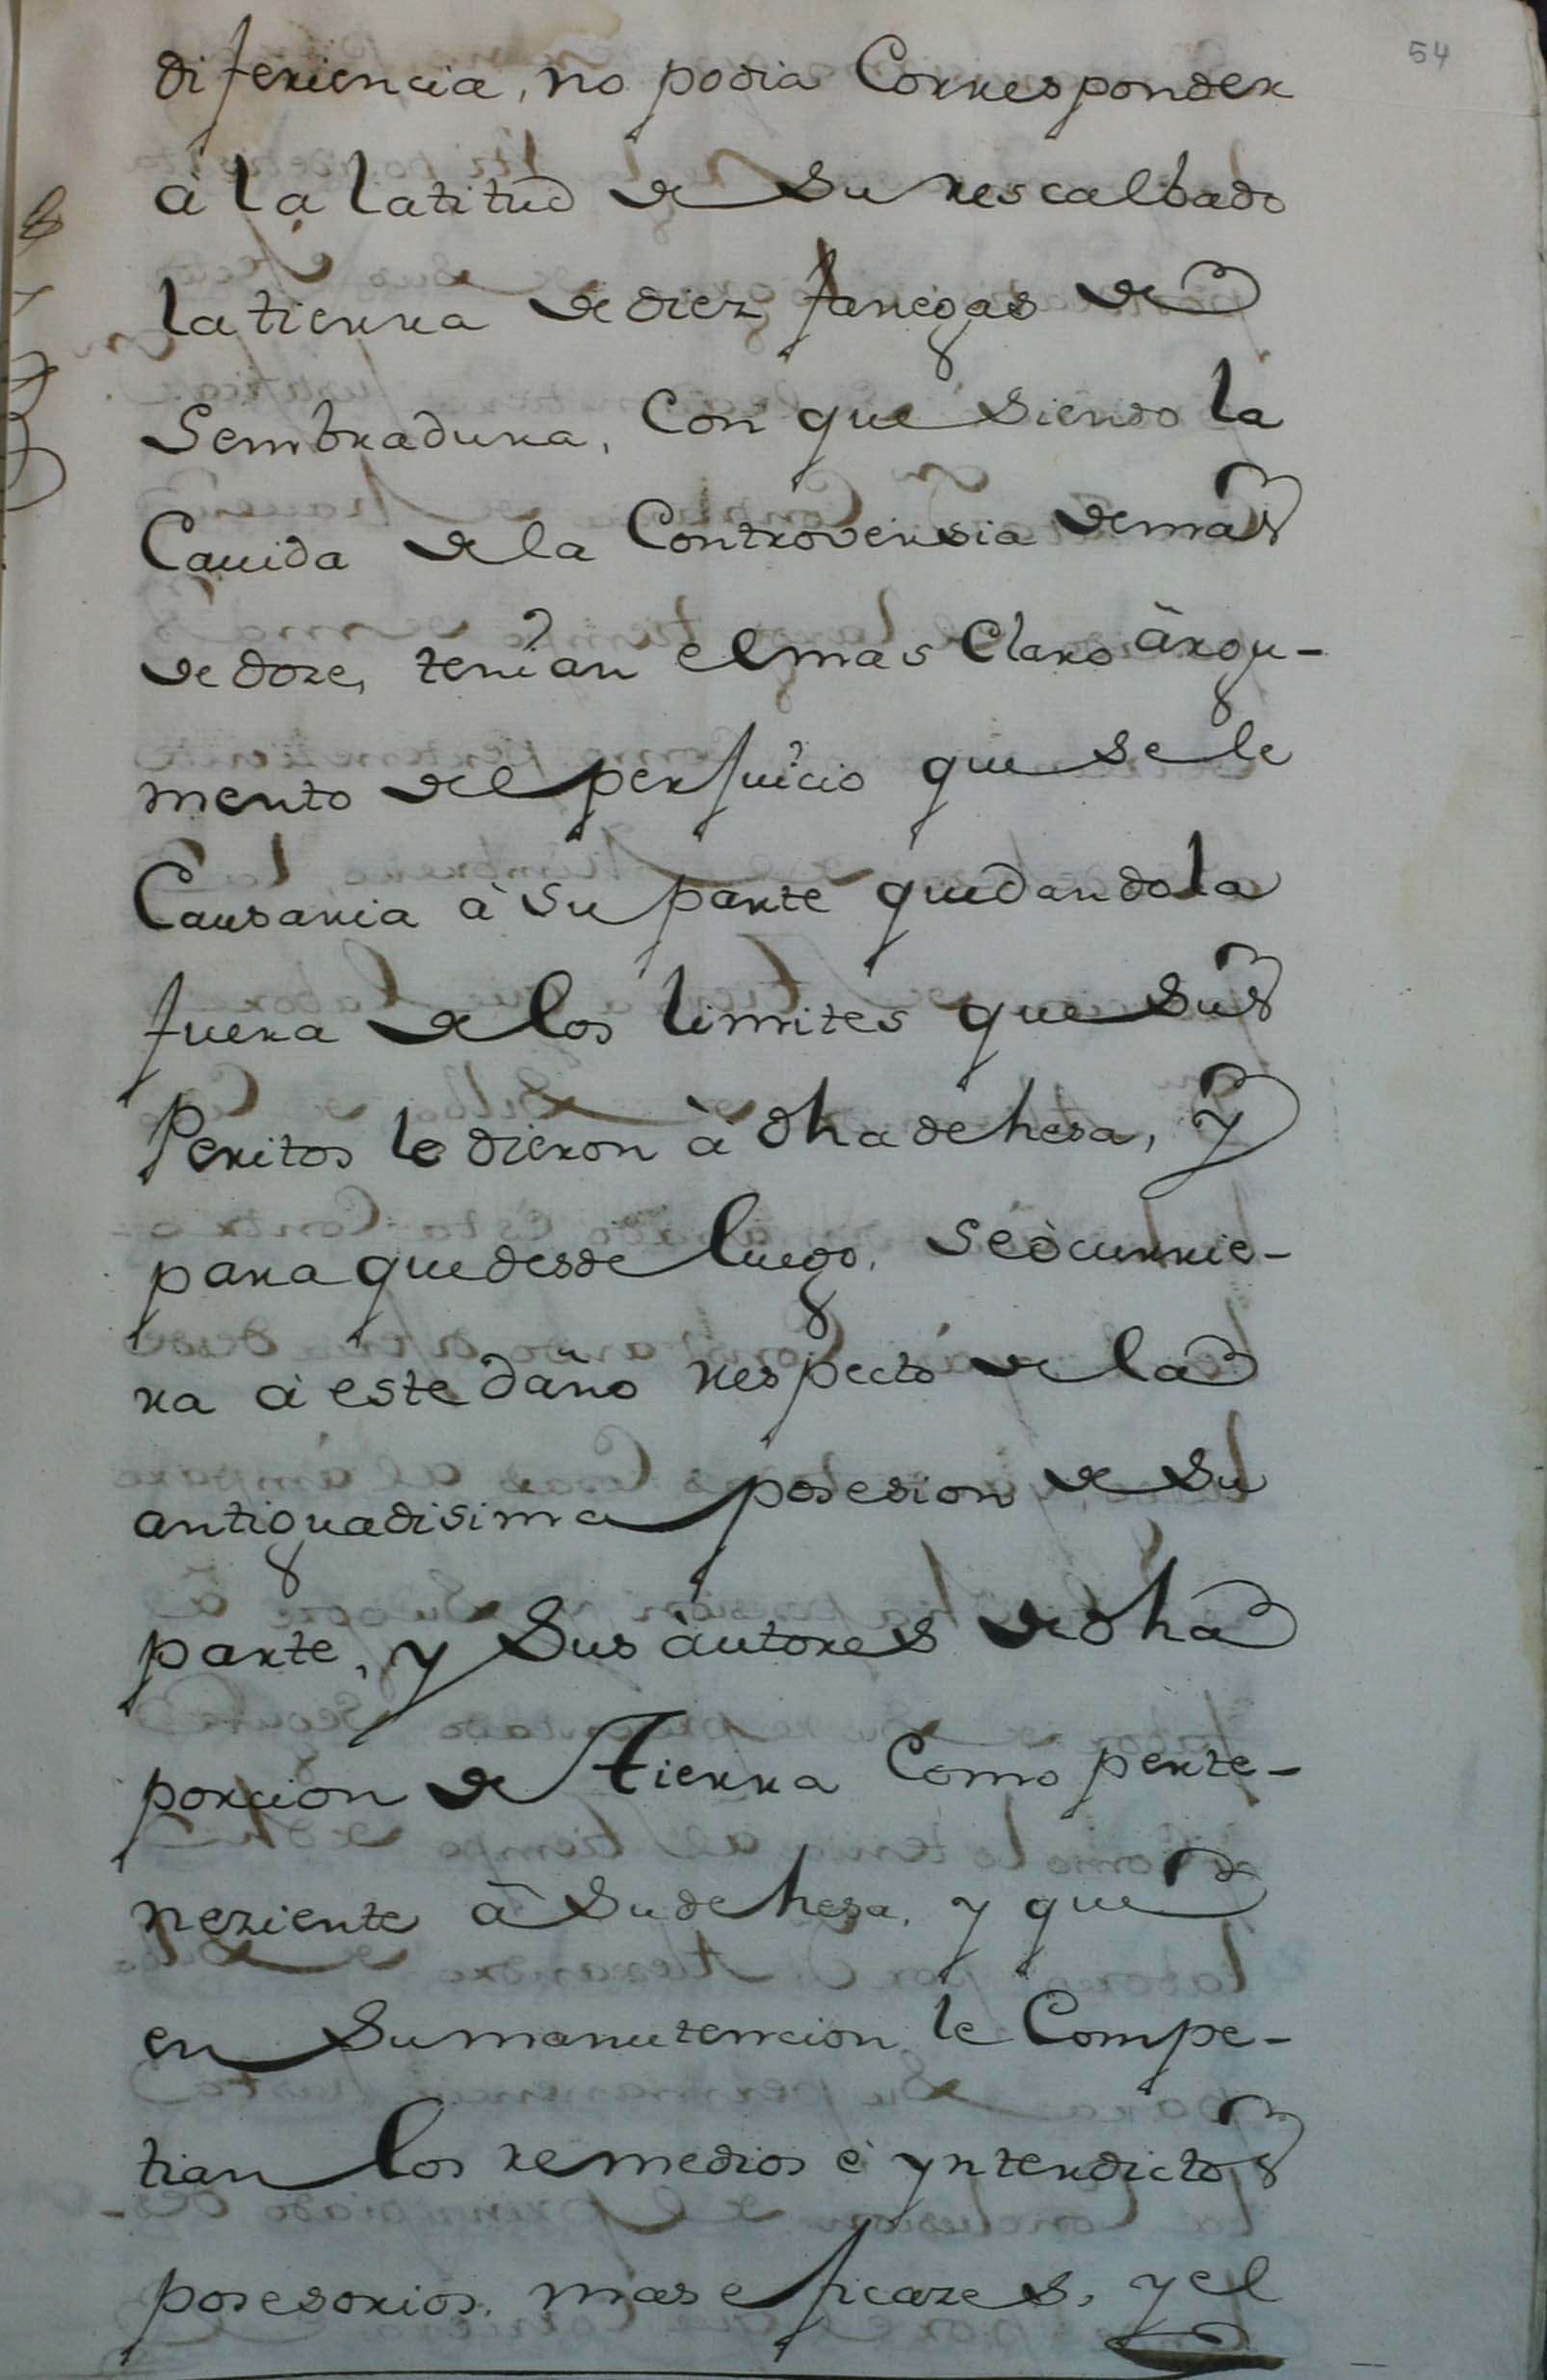 54
diferiencia, no podia Corresponder
à la latitud de su rescalbado
la tierra de diez fanegas de
Sembradura, Con que siendo la
Cauida de la Controversia de mas
de doze, tenian el mas Claro àrgu-
mento del perjuicio que se le
Causaria à su parte quedandola
fuera de los limites que sus
Peritos le dieron à dha dehesa, y
para que desde luego, se òcurrie-
ra à este daño respecto de la
antiguadisima posesion de su
parte, y sus àutores de dha
porcion de tierra Como perte-
neziente à su dehesa, y que
en su manutencion le Compe-
tian los remedios è ynterdictos
posesorios, mas eficazes, y el